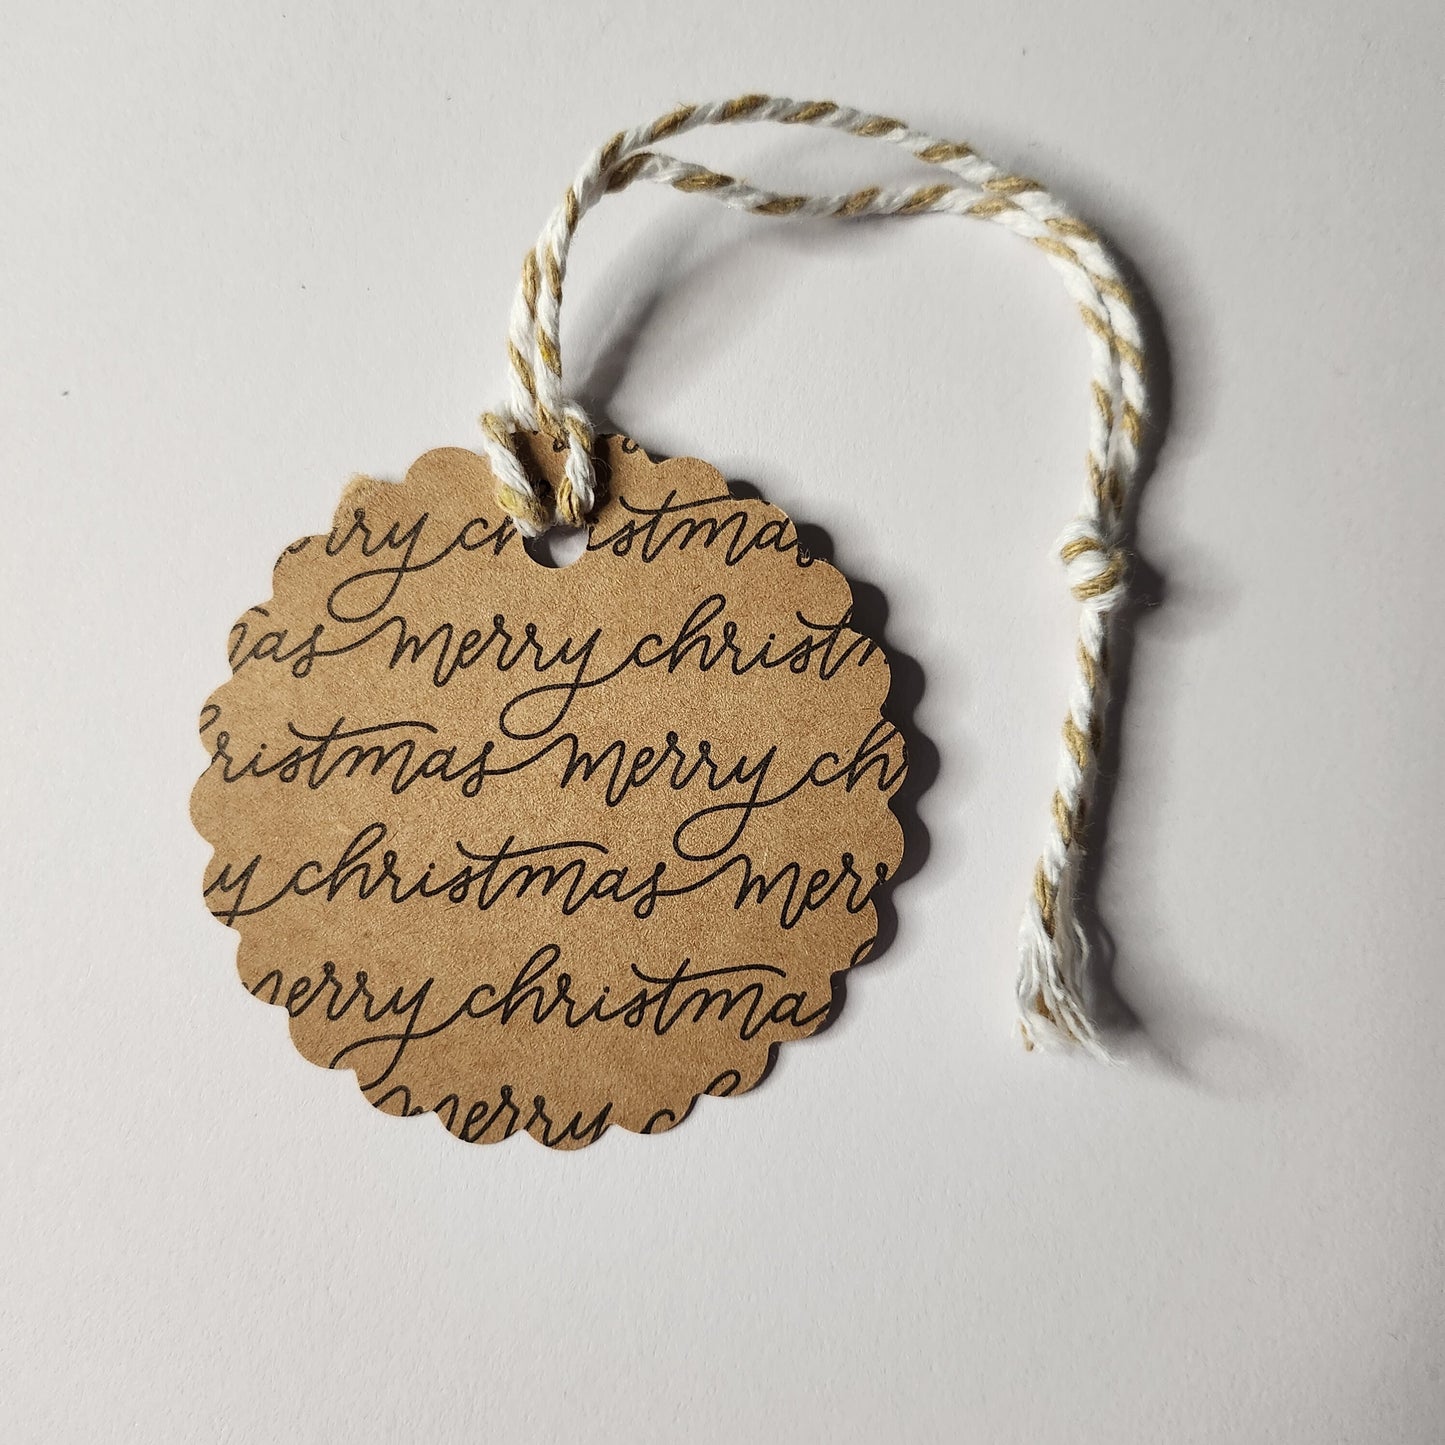 rry christma
mas merry christm
christmas merry ch
y christmas merr
merry christma
merry c